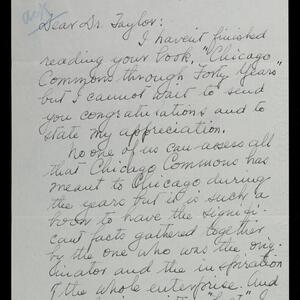 Dear Dr. Taylor:
I haven't finished
reading your book, "Chicago
Commons through Forty Years"
but I cannot wait to send
you congratulations and to
state my appreciation.
No one of us can assess all
that Chicago Commons has
meant to Chicago during
the years but it is such a
boon to have the signifi-
cant facts gathered together
by the one who was the orig-
inator and the inspiration
of the whole enterprise. And